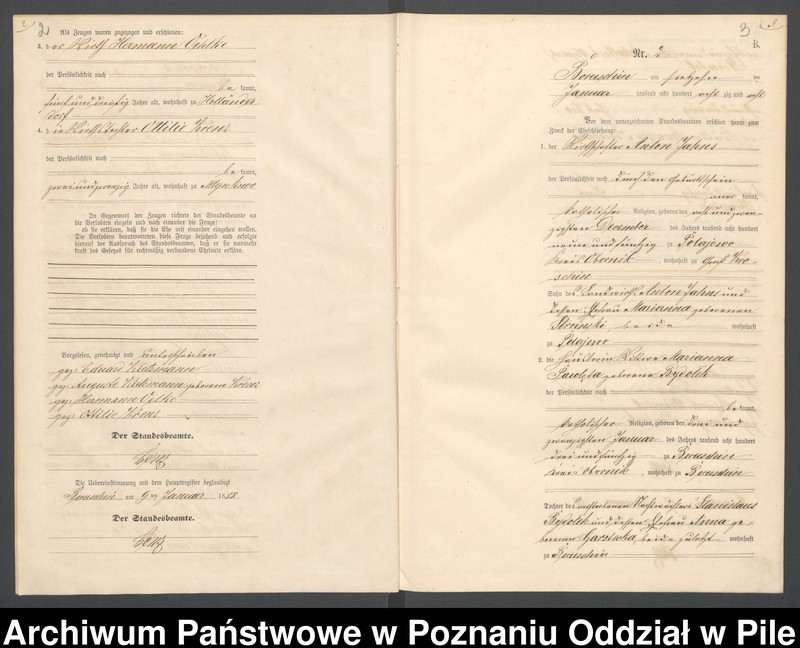 2
Als Zeugen waren zugezogen und erschienen:
3. der Wirth Hermann Oehlke
der Persönlichkeit nach
be kannt,
fünf und dreißig Jahre alt, wohnhaft zu Holländer
dorf
4. die Wirthstochter Ottilie Krenz
der Persönlichkeit nach
be kannt,
zwei und zwanzig Jahre alt, wohnhaft zu
In Gegenwart der Zeugen richtete der Standesbeamte an
die Verlobten einzeln und nach einander die Frage:
ob sie erklären, daß sie die Ehe mit einander eingehen wollen.
Die Verlobten beantworteten diese Frage bejahend und erfolgte
hierauf der Ausspruch des Standesbeamten, daß er sie nunmehr
kraft des Gesetzes für rechtmäßig verbundene Eheleute erkläre.
Vorgelesen, genehmigt und unterschrieben
gez. Eduard
gez. Auguste geborene Krenz
gez. Hermann Oelke
gez. Ottilie Krenz
Der Standesbeamte.
Die Uebereinstimmung mit dem Hauptregister beglaubigt
am 9ten Januar 1888
Der Standesbeamte.
3
B.
Nr. 2
am siebzehn ten
Januar tausend acht hundert acht zig und acht
Vor dem unterzeichneten Standesbeamten erschien heute zum
Zweck der Eheschließung:
1. der Wirthssohn Anton Jahns
der Persönlichkeit nach durch den Geburtsschein
kannt,
katholischer Religion, geboren den acht und zwan-
zigsten December des Jahres tausend acht hundert
neun und fünfzig zu Polajewo
Kreis Obornik, wohnhaft zu Groß Kro-
schin
Sohn des Landwirths Anton Jahns und
dessen Ehefrau Marianna geborenen
beide wohnhaft
zu Polajewo
2. die Häuslerin Wittwe Marianna
geborene Rybolik
der Persönlichkeit nach
be kannt,
katholischer Religion, geboren den drei und
zwanzigsten Januar des Jahres tausend acht hundert
drei und fünfzig zu
Kreis Obornik, wohnhaft zu
Tochter des verstorbenen Nachtwächters Stanislaus
Rybolik und dessen Ehefrau Anna ge-
borenen beide zuletzt wohnhaft
zu
Archiwum Państwowe w Poznaniu Oddział w Pile